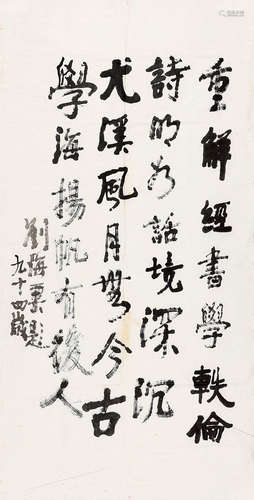 重解經書學軼倫
詩明如話境深沉
尤溪風月無今古
學海揚帆有後人
劉海粟題
九十四歲